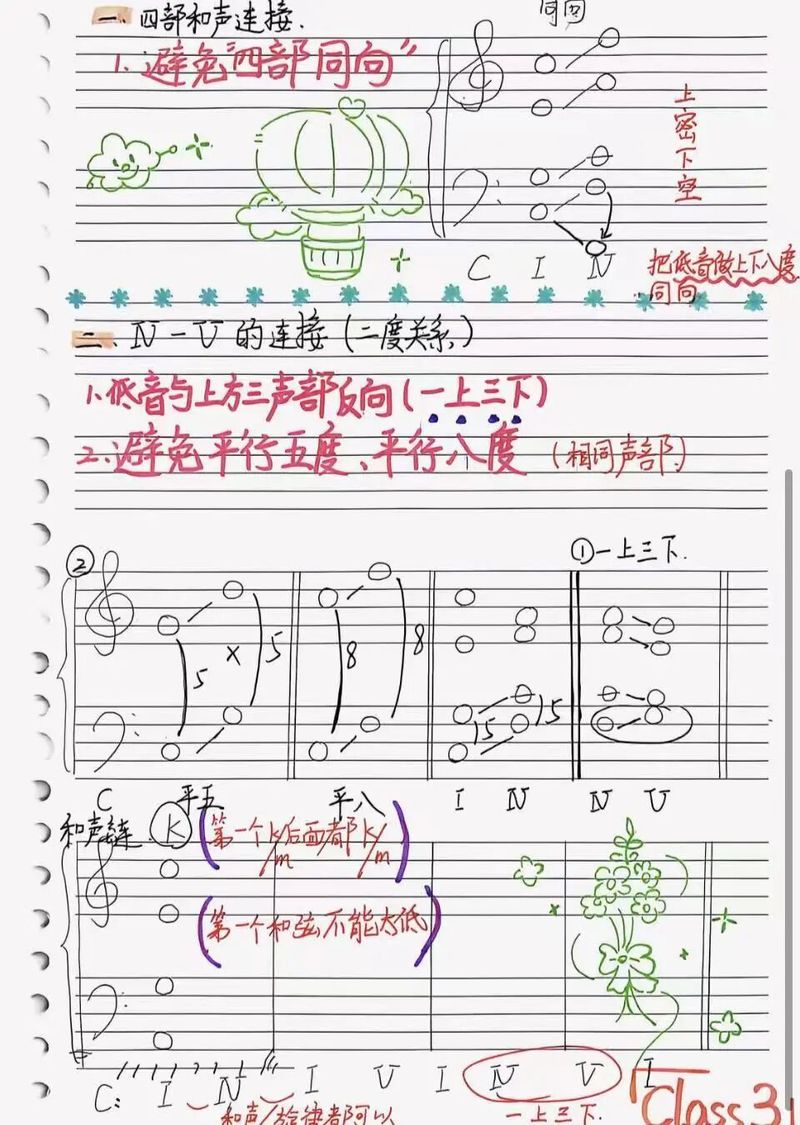 一、四部和声连接.
同向
1. 避免"四部同向"
上密下空
C I IV
把低音做上下八度
同向
二、IV－V的连接(二度关系)
1.低音与上方三声部反向(一上三下)
2.避免平行五度、平行八度(相同声部)
② ①一上三下.
5 × 5 8 8 5 5
C 平五 平八 I IV IV V
和声连 K (第一个k/m后面都k/m)
(第一个和弦不能太低)
C: I IV I V I IV V I
和声/旋律都可以 一上三下. Class 3